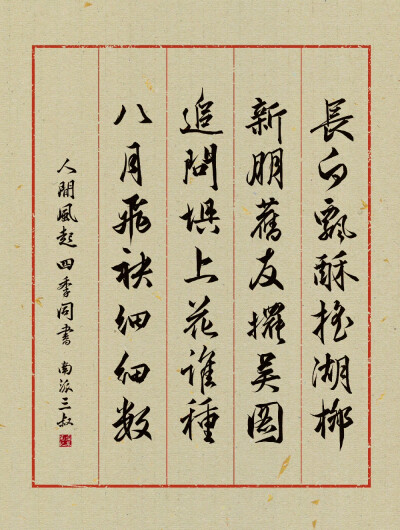 長白飄酥搖湖
新朋舊友擺吳
追問上花誰種
八月飛袂細細數
人間風起四季同書 南派三叔